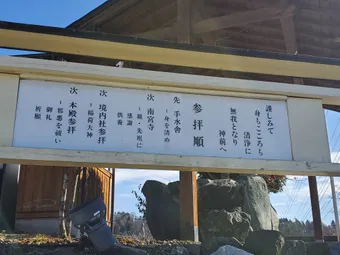 謹しみて
身も・こころも
清浄に
無我となり
神前へ
参拝順
先 手水舎
－身を清め
次 南宮寺
－親・先祖に
感謝
供養
次 境内社参拝
－稲荷天神
次 本殿参拝
－邪悪を祓い
御礼
祈願